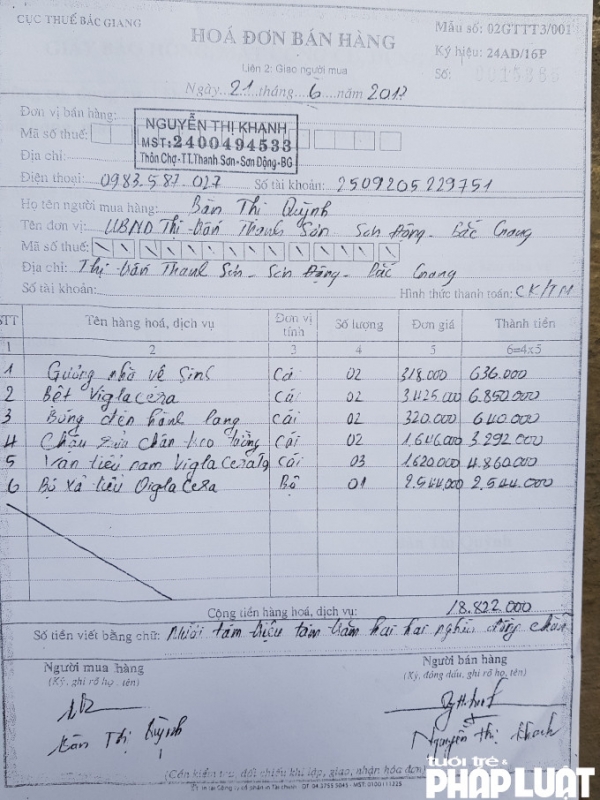 CỤC THUẾ BẮC GIANG
HOÁ ĐƠN BÁN HÀNG
Mẫu số: 02GTTT3/001
Ký hiệu: 24AD/16P
Liên 2: Giao người mua
Số:
Ngày 21 tháng 6 năm 2017
Đơn vị bán hàng:
Mã số thuế:
Địa chỉ:
NGUYỄN THỊ KHANH
MST: 2400494533
Thôn Chợ-TT.Thanh Sơn-Sơn Động-BG
Điện thoại: 0983.587.027 Số tài khoản: 2509205229751
Họ tên người mua hàng: Bàn Thị Quỳnh
Tên đơn vị: UBND Thị trấn Thanh Sơn - Sơn Động - Bắc Giang
Mã số thuế:
Địa chỉ: Thị trấn Thanh Sơn - Sơn Động - Bắc Giang
Số tài khoản: Hình thức thanh toán: CK/TM
STT Tên hàng hoá, dịch vụ Đơn vị tính Số lượng Đơn giá Thành tiền
1 2 3 4 5 6=4x5
1 Gương nhà vệ sinh Cái 02 318.000 636.000
2 Bệt Viglacera Cái 02 3.425.000 6.850.000
3 Bóng đèn hành lang Cái 02 320.000 640.000
4 Chậu rửa chân treo tường Cái 02 1.646.000 3.292.000
5 tiểu nam Viglacera Cái 03 1.620.000 4.860.000
6 Bộ xả tiểu Viglacera Bộ 01 2.544.000 2.544.000
Cộng tiền hàng hoá, dịch vụ: 18.822.000
Số tiền viết bằng chữ: Mười tám triệu tám trăm hai hai nghìn đồng chẵn
Người mua hàng
(Ký, ghi rõ họ, tên)
Bàn Thị Quỳnh
Người bán hàng
(Ký, đóng dấu, ghi rõ họ, tên)
Nguyễn Thị Khanh
(Cần kiểm tra, đối chiếu khi lập, giao, nhận hóa đơn)
tuổi trẻ &
PHÁP LUẬT